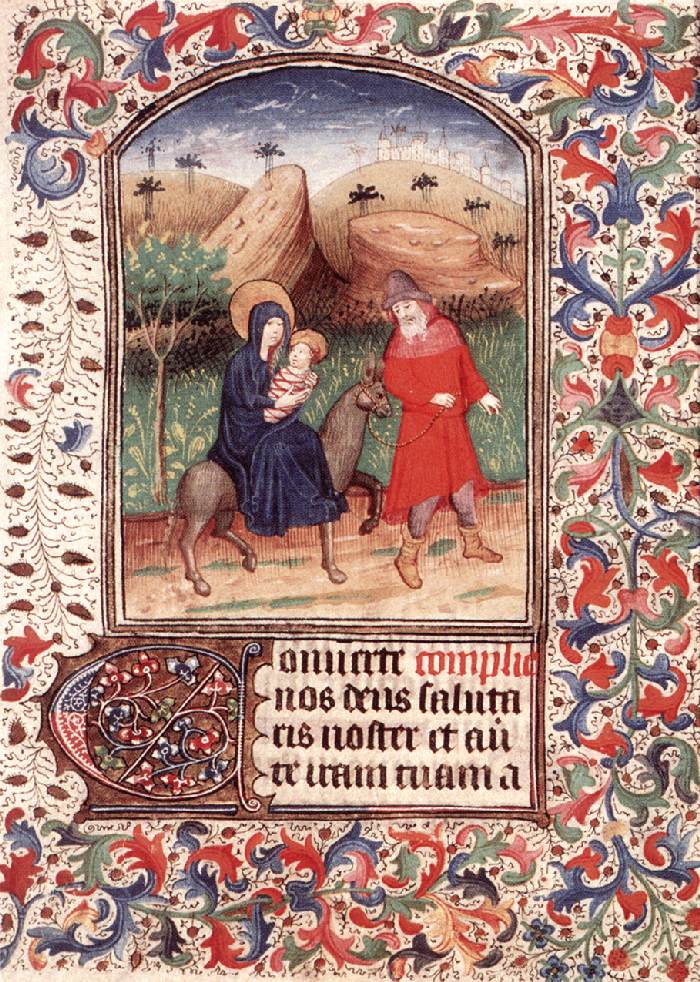 Conuerte complie
nos deus saluta
ris noster et aū
te iram tuam a